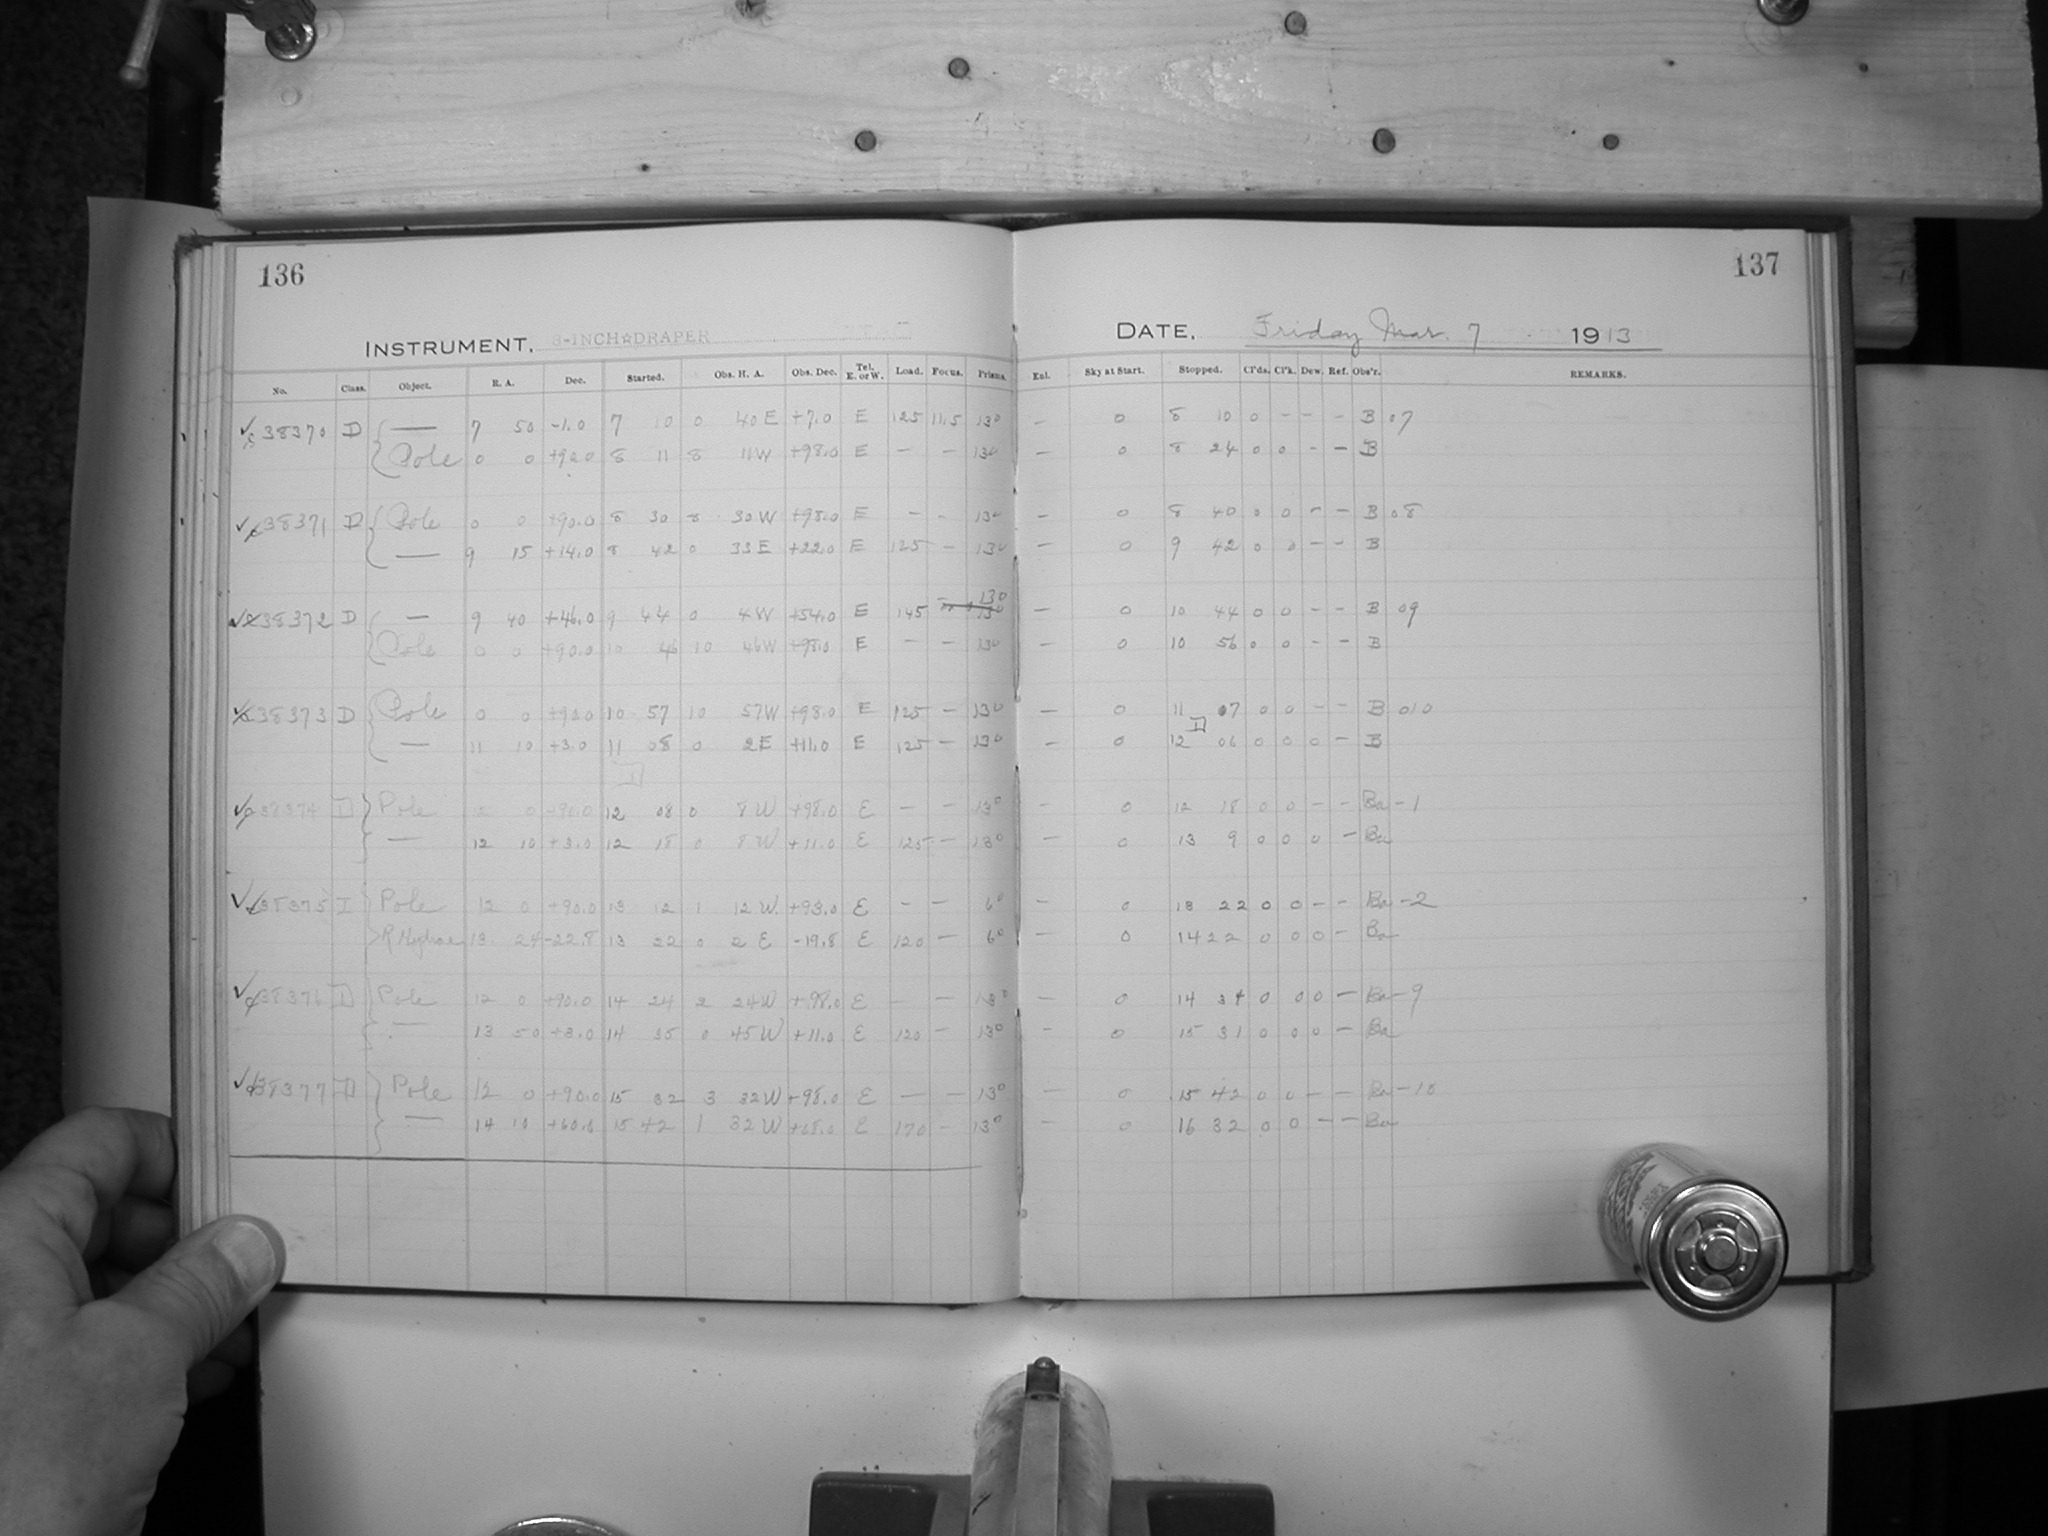 136
137
INSTRUMENT. 8-INCH☆DRAPER
DATE, Friday Mar. 7 1913
No. Class. Object. R. A. Dec. Started. Obs. H. A. Obs. Dec. Tel. E. or W. Load. Focus. Prisms. Enl. Sky at Start. Stopped. Cl'ds. Cl'k. Dew. Ref. Obs'r. REMARKS.
38370 D — 7 50 -1.0 7 10 0 40 E +7.0 E 125 11.5 13° — 0 8 10 0 - - - B 07
Pole 0 0 +90.0 8 11 8 11W +98.0 E — — 13° — 0 8 24 0 0 - - B
38371 D Pole 0 0 +90.0 8 30 8 30W +98.0 E - - 13° — 0 8 40 0 0 - - B 08
— 9 15 +14.0 8 42 0 33E +22.0 E 125 - 13° — 0 9 42 0 0 - - B
38372 D — 9 40 +46.0 9 44 0 4W +54.0 E 145 - 13° — 0 10 44 0 0 - - B 09
Pole 0 0 +90.0 10 46 10 46W +98.0 E — — 13° — 0 10 56 0 0 - - B
38373 D Pole 0 0 +90.0 10 57 10 57W +98.0 E 125 — 13° — 0 11 07 0 0 - - B 010
— 11 10 +3.0 11 08 0 2E +11.0 E 125 — 13° — 0 12 06 0 0 0 - B
38374 D Pole 12 0 +90.0 12 08 0 8W +98.0 E — — 13° — 0 12 18 0 0 - - Ba -1
— 12 10 +3.0 12 18 0 8W +11.0 E 125 — 13° — 0 13 9 0 0 0 - Ba
38375 I Pole 12 0 +90.0 13 12 1 12W. +93.0 E - — 6° — 0 13 22 0 0 - - Ba -2
R Hydrae 13. 24 -22.8 13 22 0 2 E -19.8 E 120 — 6° — 0 14 22 0 0 0 - Ba
38376 D Pole 12 0 +90.0 14 24 2 24W +98.0 E — — 13° — 0 14 34 0 0 0 - Ba -9
— 13 50 +3.0 14 35 0 45W +11.0 E 120 - 13° — 0 15 31 0 0 0 - Ba
38377 D Pole 12 0 +90.0 15 32 3 32W +98.0 E — — 13° — 0 15 42 0 0 - - Ba -10
— 14 10 +60.0 15 42 1 32W +68.0 E 170 - 13° — 0 16 32 0 0 - - Ba